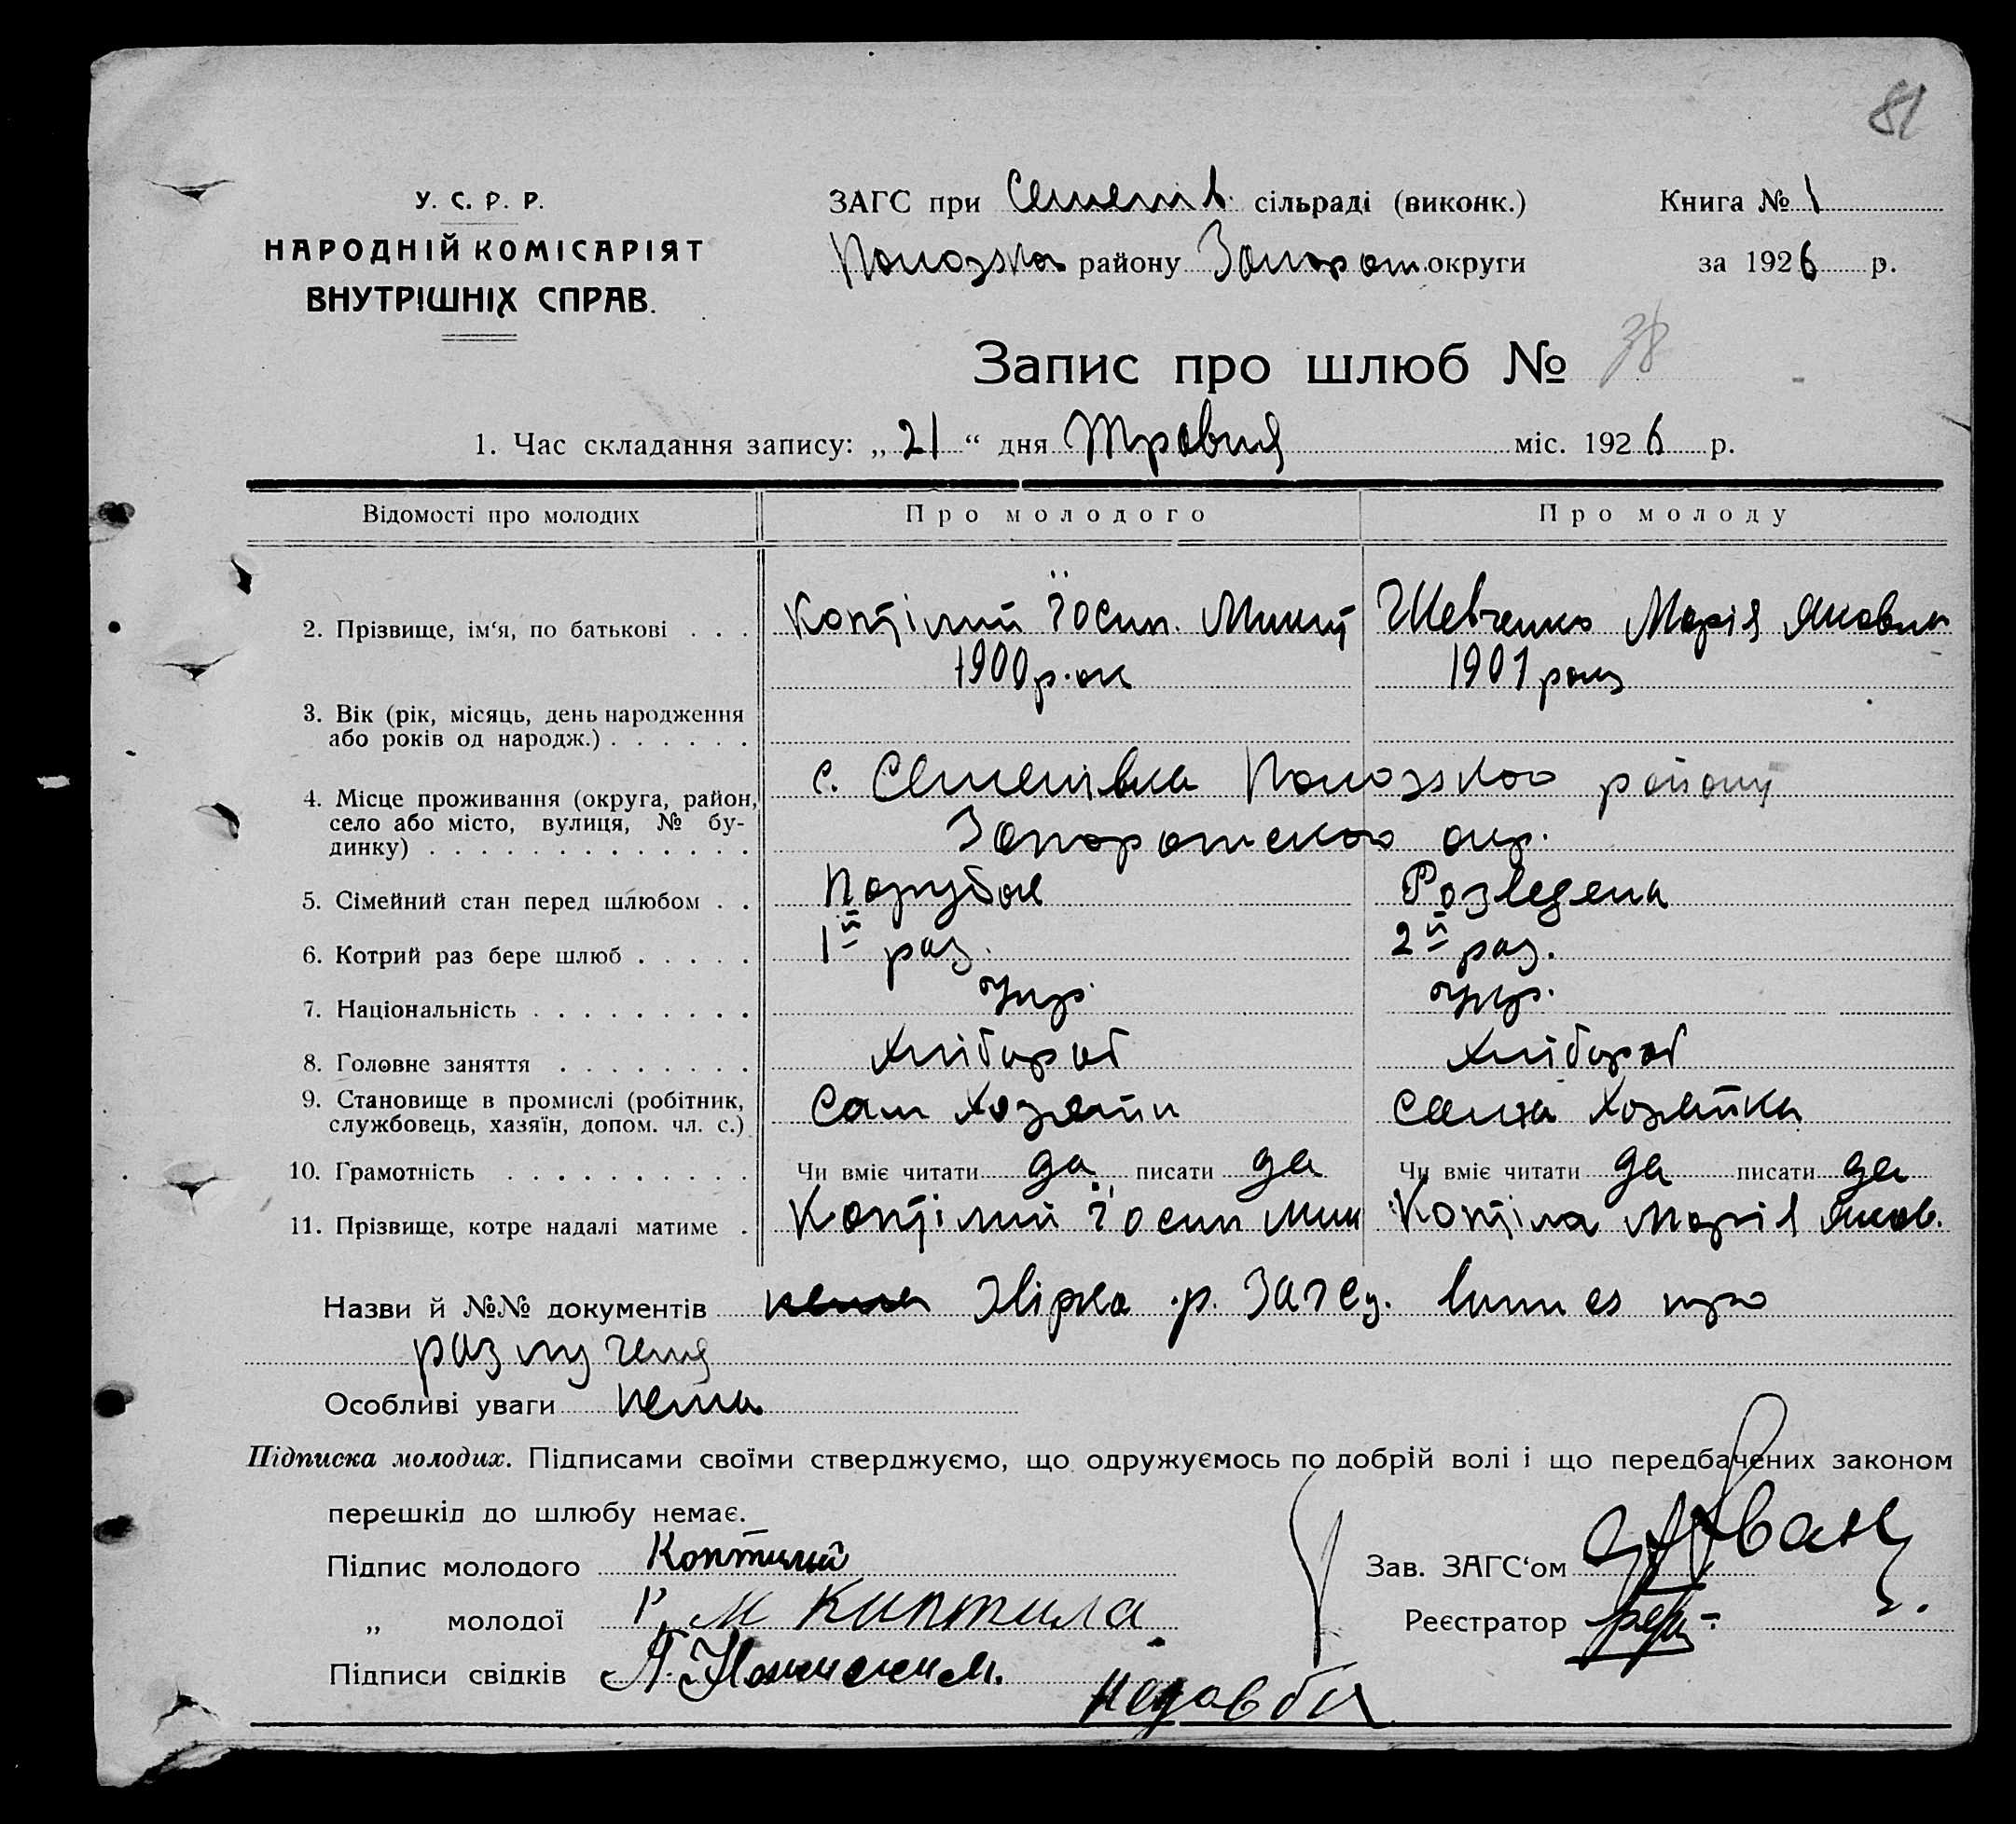 81
У. С. Р. Р.
НАРОДНІЙ КОМІСАРІЯТ
ВНУТРІШНІХ СПРАВ.
ЗАГС при Семенів. сільраді (виконк.)
Книга № 1
району Запорож округи
за 1926 р.
Запис про шлюб № 38
1. Час складання запису: „ 21 “ дня Травня міс. 1926 р.
Відомості про молодих
Про молодого
Про молоду
2. Прізвище, ім‘я, по батькові . . .
Коптілий Йосип.
Шевченко Марія Яковна
1900 р.
1901 року
3. Вік (рік, місяць, день народження
або років од народж.) . . . . . .
4. Місце проживання (округа, район,
село або місто, вулиця, № бу-
динку) . . . . . . . . . . . . .
с. Семенівка району
окр.
5. Сімейний стан перед шлюбом . .
Парубок
Розведена
6. Котрий раз бере шлюб . . . . .
1й раз.
2й раз.
7. Національність . . . . . . . . .
укр.
укр.
8. Головне заняття . . . . . . . .
Хлібороб
Хлібороб
9. Становище в промислі (робітник,
службовець, хазяїн, допом. чл. с.)
Сам Хозяйин
Сама Хозяйка
10. Грамотність . . . . . . . . . .
Чи вміє читати да писати да
Чи вміє читати да писати да
11. Прізвище, котре надалі матиме .
Коптілий Йосип Мик
Коптіла Марія Яков.
Назви й №№ документів
р. Загсу. про
разлучення
Особливі уваги нема
Підписка молодих. Підписами своїми стверджуємо, що одружуємось по добрій волі і що передбачених законом
перешкід до шлюбу немає.
Підпис молодого Коптилий
Зав. ЗАГС‘ом
„ молодої М Киптила
Реєстратор
Підписи свідків